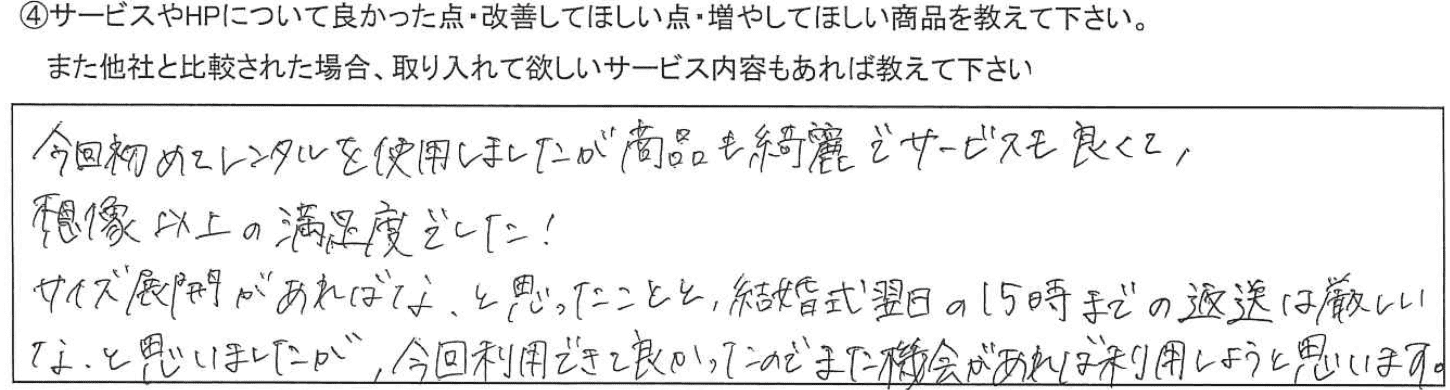 ④サービスやHPについて良かった点・改善してほしい点・増やしてほしい商品を教えて下さい。
また他社と比較された場合、取り入れて欲しいサービス内容もあれば教えて下さい
今回初めてレンタルを使用しましたが商品も綺麗でサービスも良くて、
想像以上の満足度でした！
サイズ展開があればな、と思ったことと、結婚式翌日の15時までの返送は厳しい
な、と思いましたが、今回利用できて良かったのでまた機会があれば利用しようと思います。